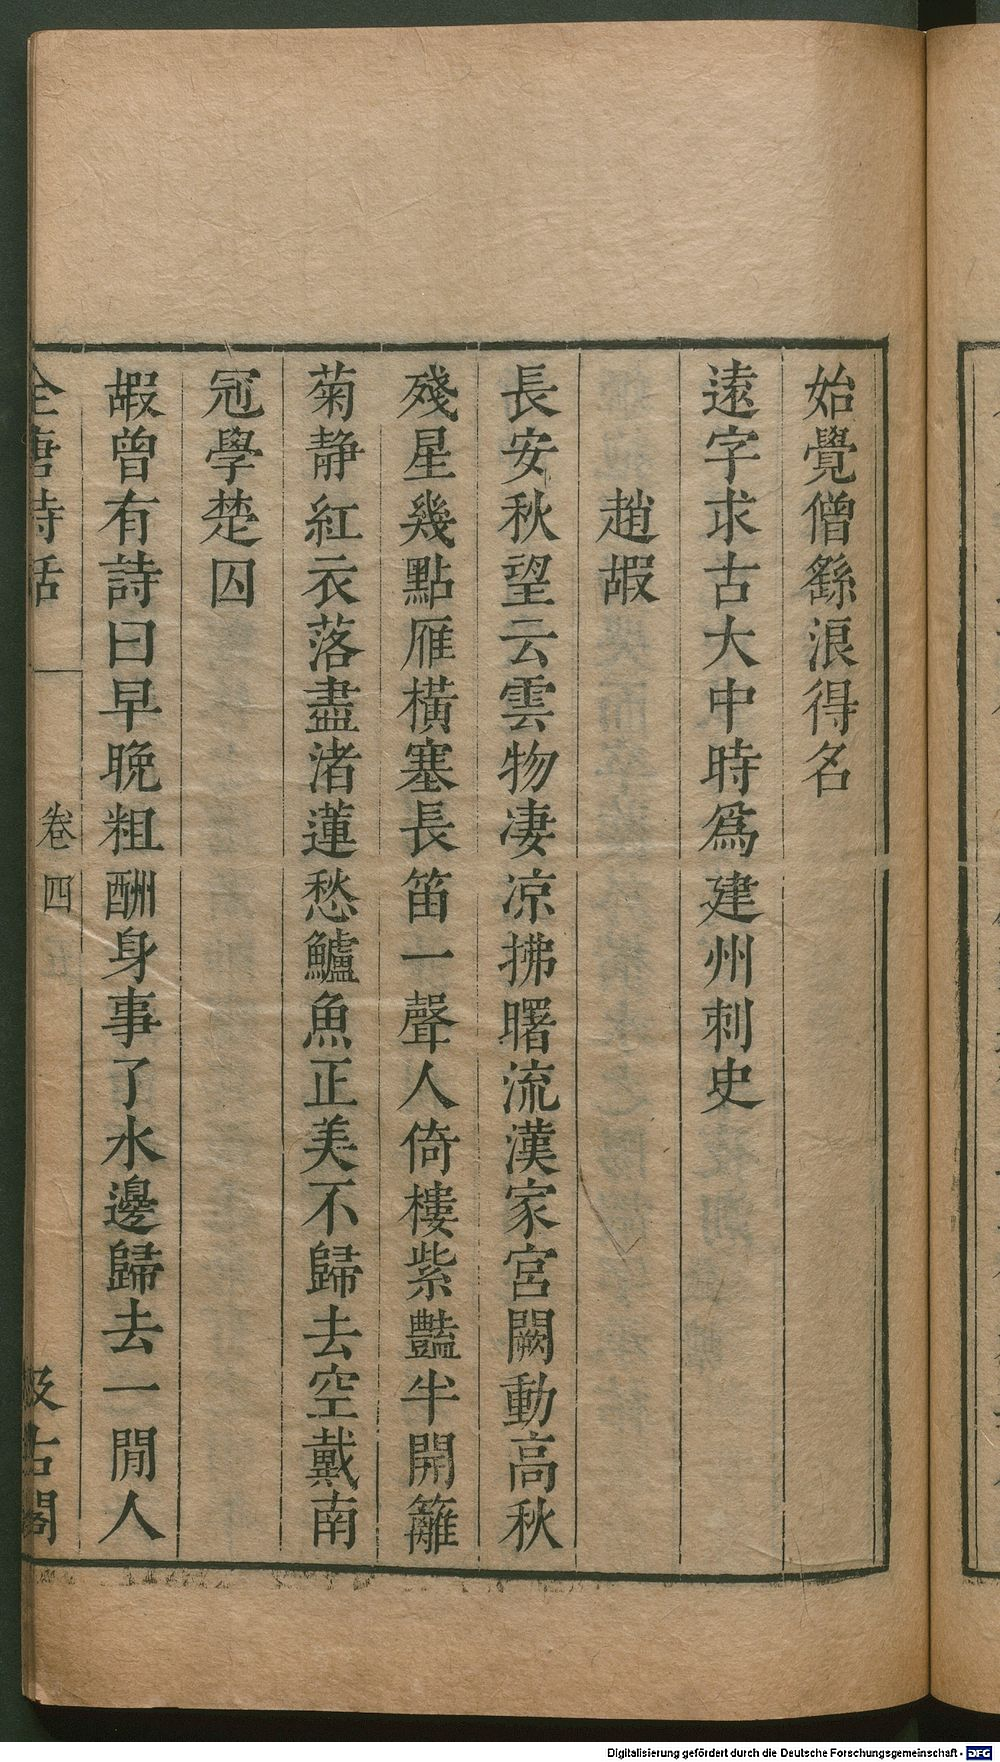 始覺僧繇浪得名
遠字求古大中時爲建州刺史
趙嘏
長安秋望云雲物凄凉拂曙流漢家宮闕動高秋
殘星幾點雁橫塞長笛一聲人倚樓紫豔半開籬
菊静紅衣落盡渚蓮愁鱸魚正美不歸去空戴南
冠學楚囚
嘏曾有詩曰早晚粗酬身事了水邊歸去一閒人
全唐詩話 卷四 汲古閣
Digitalisierung gefördert durch die Deutsche Forschungsgemeinschaft - DFG